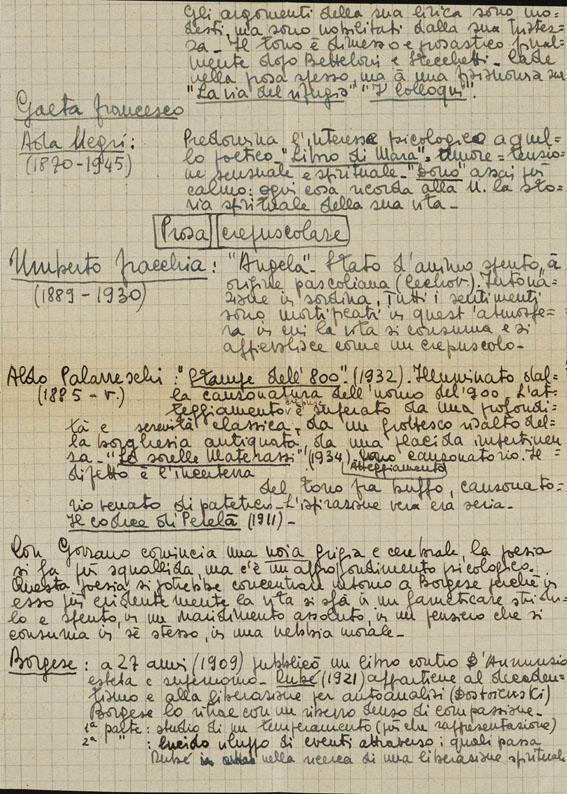 Gli argomenti della sua lirica sono mo=
desti, ma sono nobilitati dalla sua tristez=
za. Il tono è dimesso e prosastico final=
mente dopo Betteloni e Stecchetti. Cade
nella prosa spesso, ma à una
"La via del rifugio" "I colloqui".
Gaeta Francesco
Ada Negri: Predomina l'interesse psicologico a quel=
(1870-1945) lo poetico. "Libro di Mara". Amore = tensio=
ne sensuale e spirituale. "Dono" assai più
calmo: ogni cosa ricorda alla N. la sto=
ria spirituale della sua vita.
Prosa crepuscolare
Umberto Fracchia: "Angela". Stato d'animo spento, à
(1889-1930) origine pascoliana (Cechov). Intona=
zione in sordina. Tutti i sentimenti
sono mortificati in quest'atmosfe=
ra in cui la vita si consuma e si
affievolisce come un crepuscolo.
Aldo Palazzeschi: "Stampe dell'800". (1932). Illuminato dal=
(1885 - v.) la canzonatura dell'uomo del '900. L'at=
teggiamento è superato da una profondi=
tà e serenità classica, da un grottesco risalto del=
la borghesia antiquata, da una placida impertinen
za. "Le sorelle Materassi" (1934) tono canzonatorio. Il
Atteggiamento
difetto è l'incertezza
del tono fra buffo, canzonato=
rio venato di patetico. L'ispirazione vera era seria.
Il codice di Perelà (1911).
Con Govoni comincia una noia grigia e cerebrale, la poesia
si fa più squallida, ma c'è un approfondimento psicologico.
Questa poesia si potrebbe concentrare intorno a Borgese perché in
esso più evidentemente la vita si sfà in un farneticare
lo e spento, in un inaridimento assoluto, in un pensiero che si
consuma in sè stesso, in una nebbia morale.
Borgese: a 27 anni (1909) pubblicò un libro contro D'Annunzio
esteta e superuomo. Rubè (1921) appartiene al decaden=
tismo e alla liberazione per autoanalisi (Dostoievski)
Borgese lo ritrae con un riserbo denso di compassione.
1ª parte: studio di un temperamento (più che rappresentazione)
2ª " : lucido viluppo di eventi attraverso i quali passa
Rubè nella ricerca di una liberazione spirituale